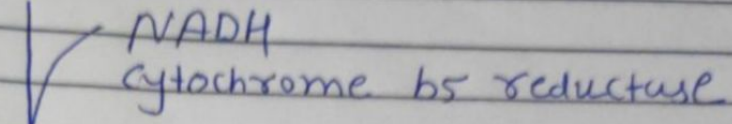 NADH
Cytochrome b5 reductase